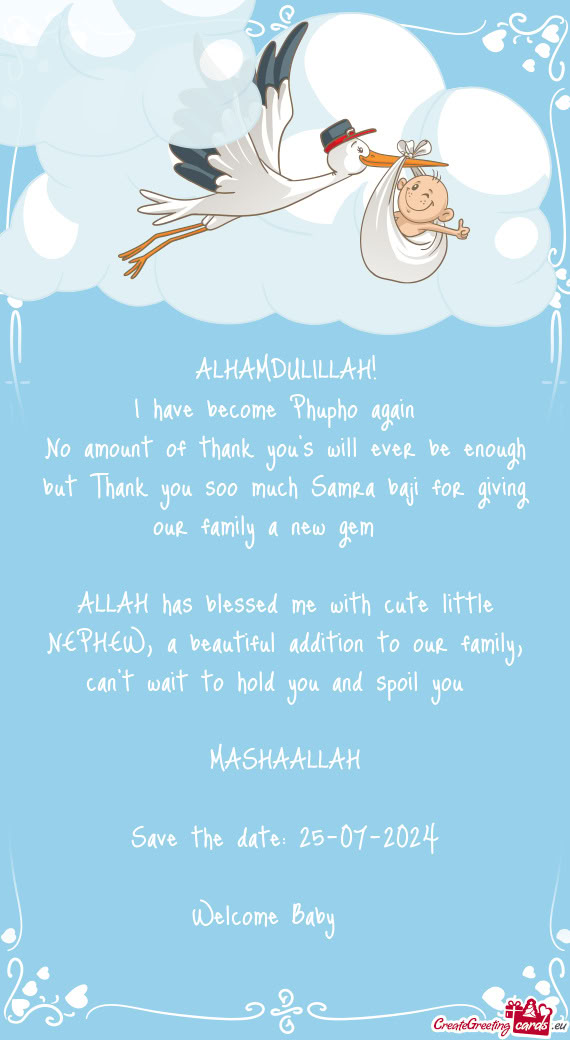 ALHAMDULILLAH!
I have become Phupho again
No amount of thank you's will ever be enough
but Thank you soo much Samra baji for giving
our family a new gem
ALLAH has blessed me with cute little
NEPHEW, a beautiful addition to our family,
can't wait to hold you and spoil you
MASHAALLAH
Save the date: 25-07-2024
Welcome Baby
CreateGreeting cards .eu